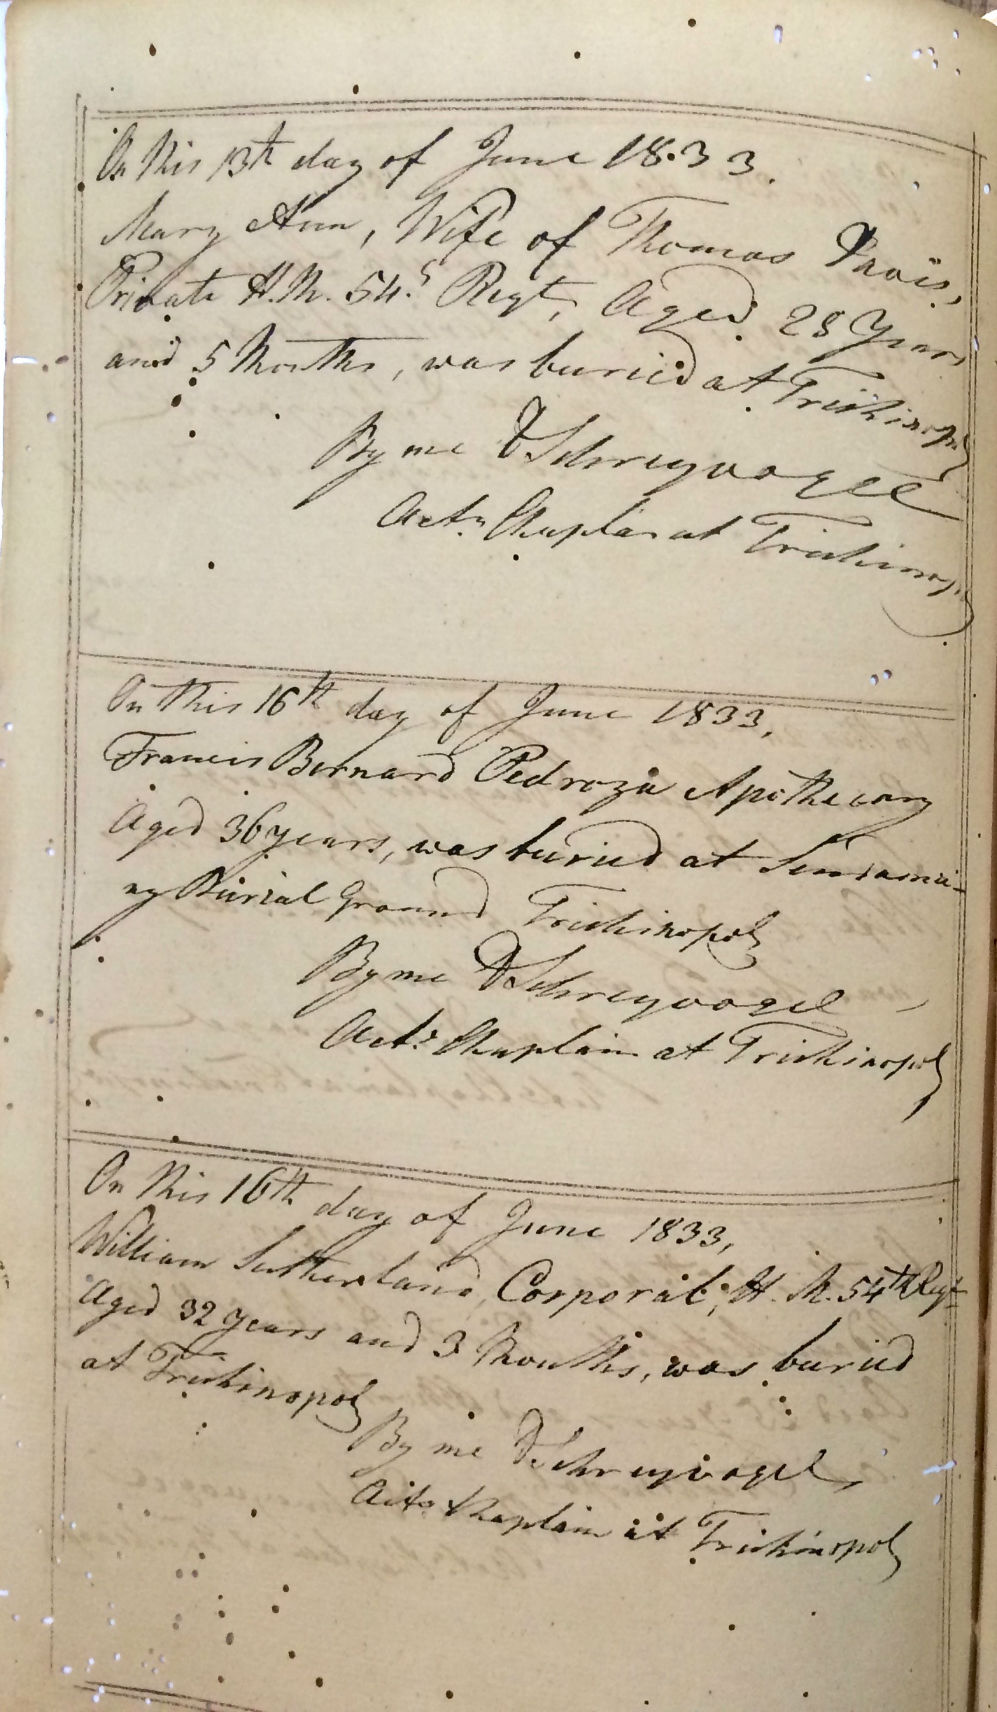 On this 13th day of June 1833.
Mary Ann, Wife of Thomas Davis,
Private H. M. 54th Regt, Aged 28 Years
and 5 Months, was buried at Trichinopoly
By me D Schreyvogel
Actg Chaplain at Trichinopoly
On this 16th day of June 1833,
Francis Bernard Pedroza Apothecary
Aged 36 years, was buried at
Burial Ground Trichinopoly
By me D Schreyvogel
Actg Chaplain at Trichinopoly
On this 16th day of June 1833,
William Sutherland, Corporal, H. M. 54th Regt
Aged 32 years and 3 Months, was buried
at Trichinopoly
By me D Schreyvogel,
Actg Chaplain at Trichinopoly